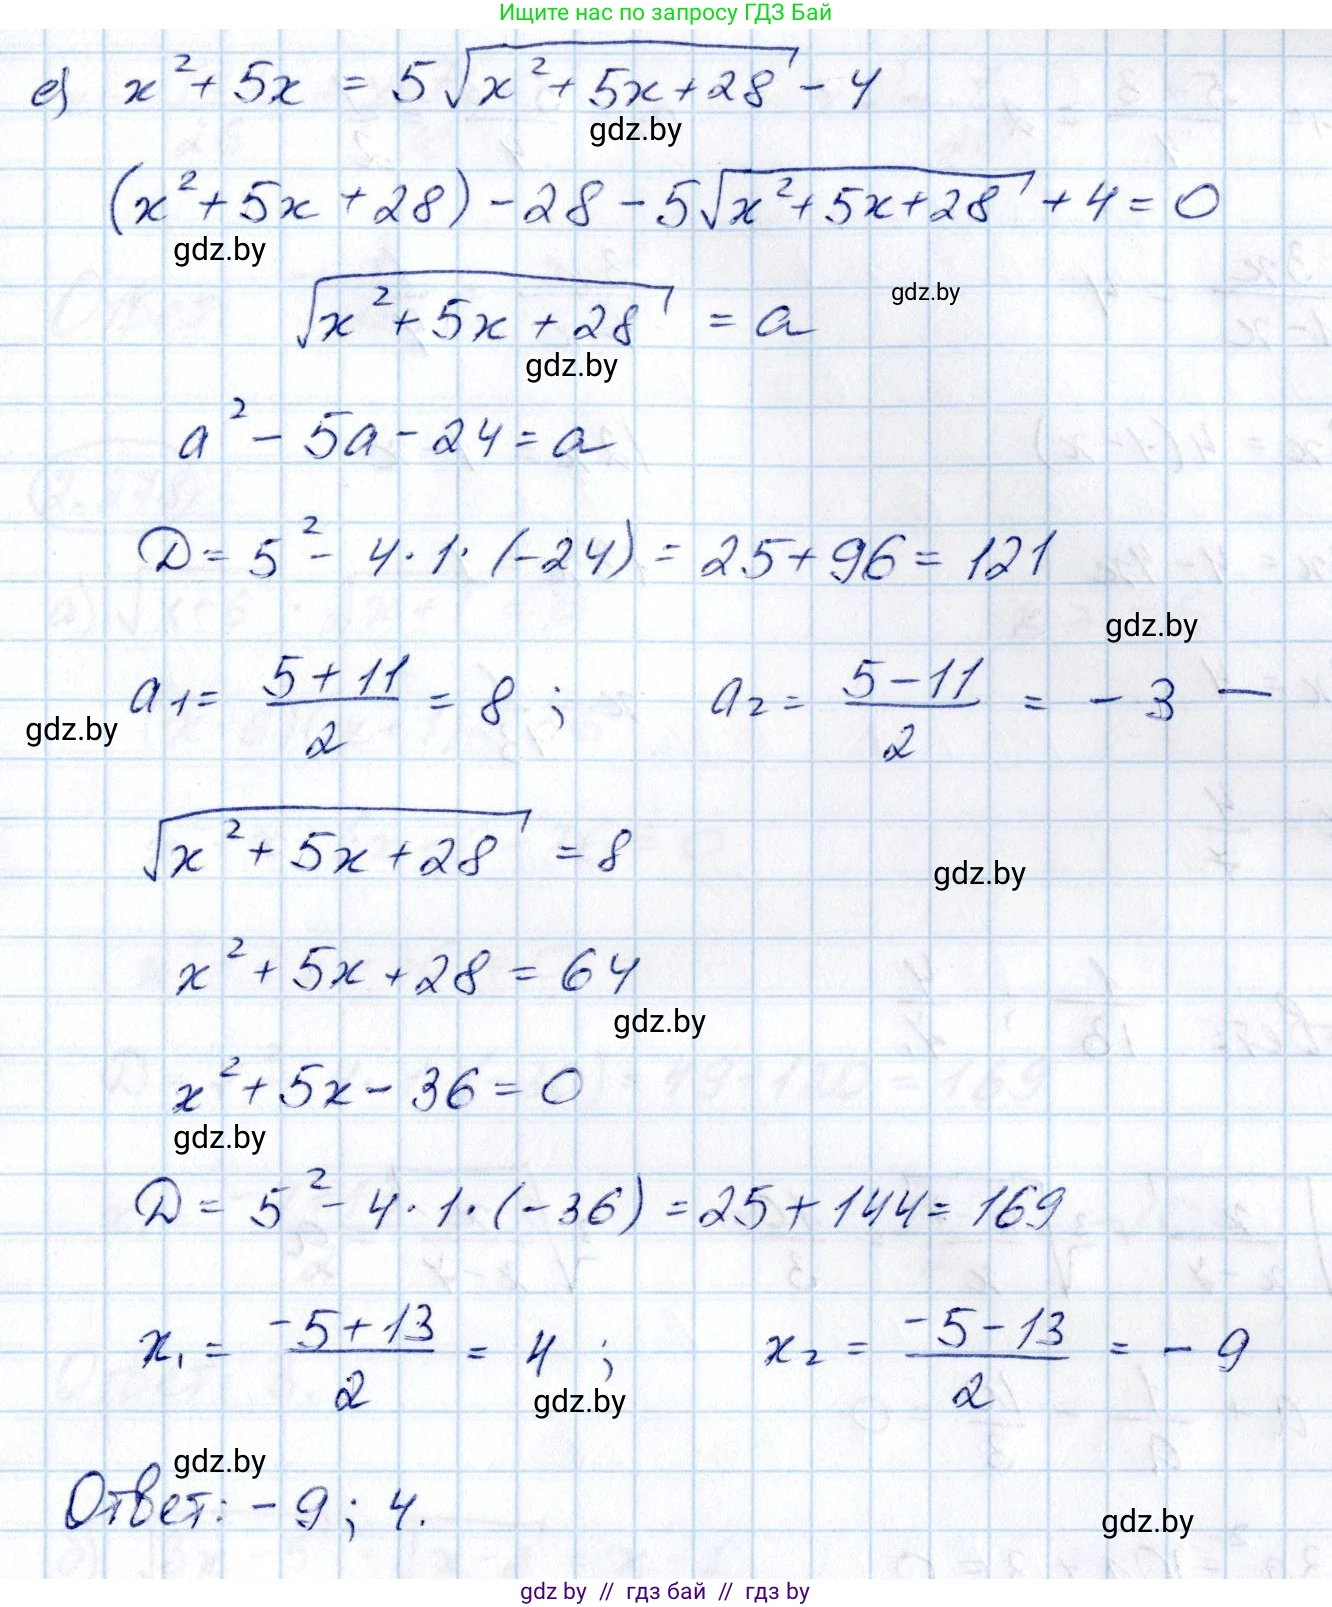 Ищите нас по запросу ГДЗ Бай
е) x² + 5x = 5√(x² + 5x + 28) - 4
gdz.by
(x² + 5x + 28) - 28 - 5√(x² + 5x + 28) + 4 = 0
gdz.by
√(x² + 5x + 28) = a
gdz.by
gdz.by
a² - 5a - 24 = a
D = 5² - 4 · 1 · (-24) = 25 + 96 = 121
gdz.by
a₁ = (5 + 11)/2 = 8 ; a₂ = (5 - 11)/2 = - 3 —
gdz.by
√(x² + 5x + 28) = 8
gdz.by
x² + 5x + 28 = 64
gdz.by
x² + 5x - 36 = 0
gdz.by
D = 5² - 4 · 1 · (-36) = 25 + 144 = 169
x₁ = (-5 + 13)/2 = 4 ; x₂ = (-5 - 13)/2 = - 9
gdz.by
gdz.by
Ответ: - 9 ; 4.
gdz.by
gdz by // гдз бай // гдз by